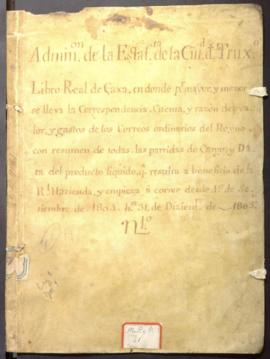 Admin.on de la Estaf.ta de la Ciu.d de Trux.o
Libro Real de Caxa, en donde p.r mayor, y menor
se lleva la Correspondencia, Cuenta, y razón del va-
lor, y gastos de los Correos ordinarios del Reyno
con resumen de todas las partidas de Cargo, y Da-
ta del producto liquido, q.e resulta a beneficio de la
R.l Hazienda, y empieza á correr desde 1.o de Se-
tiembre de 1803. h.ta 31 de Diciem.e de 1805.
N.1.o